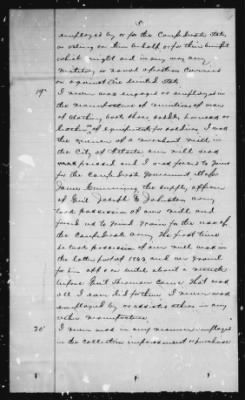 5
employed by or for the Confederate States
or acting on their behalf or for their benefit
which might aid in any way any
military or naval operation carried on
against the United States
19th I never was engaged or employed in
the manufacture of munitions of war
of clothing boots shoes saddles harness or
leather of equipments for soldiers I was
the runner of a merchant mill in
the City of Atlanta our mill used
was pressed and I was forced to grind
for the Confederate Government Major
James Cummings the supply officer
of Genl Joseph E Johnston army
took possession of our mill and
forced us to grind grain for the use of
the Confederate army The first time
he took possession of our mill was in
the latter part of 1863 and we ground
for him off & on until about a month
before Genl Sherman came That was
all I ever did for them I never was
employed by or assisted others in any
other manufacture
20th I never was in any manner employed
in the collection impressment or purchase